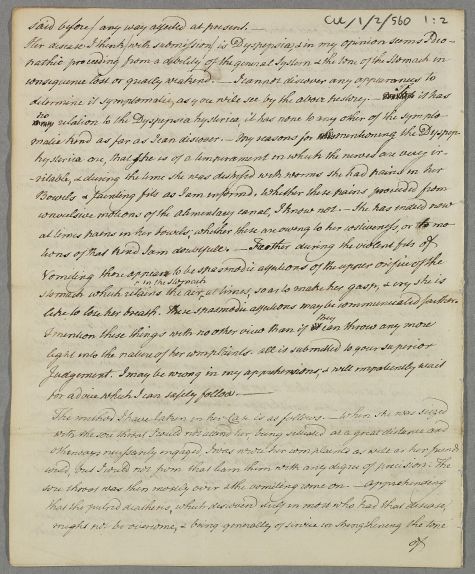 Cul/1/2/560 1:2
said before) any way affected at present. —
Her disease I think (with submission) is Dyspepsia, & in my opinion seems Idio-
pathic, proceeding from a debility of the general System & the tone of the Stomach in
consequence lost or greatly weakened. — I cannot discover any appearances to
determine it symptomatic, as you will see by the above history. — if it has
no relation to the Dyspepsia hysterica, it has none to any other of the Sympto-
matic kind as far as I can discover. — My reasons for mentioning the Dyspep:
hysterica are, that she is of a temperament in which the nerves are very ir-
-ritable, & during the time she was distressed with worms she had pains in her
Bowels & fainting fits as I am informed. Whether these pains proceeded from
convulsive motions of the alimentary canal, I know not. — She has indeed now
at times pains in her bowels, whether these are owing to her costiveness, or to mo-
tions of that kind I am doubtfull. — Farther during the violent fits of
Vomiting there appears to be spasmodic affections of the upper orifice of the
Stomach which retains the air in the Stomach at times, so as to make her gasp, & cry she is
like to lose her breath. These spasmodic affections may be communicated farther.
I mention these things with no other view than if they can throw any more
light into the nature of her complaints. all is submitted to your superior
Judgement. I may be wrong in my apprehensions, & will impatiently wait
for advice which I can safely follow. —
The method I have taken in her Case is as follows. — When she was seized
with the sore throat I could not attend her, being situated at a great distance and
otherways necessarily engaged. I was wrote her complaints as well as her friends
could, but I could not from that learn them with any degree of precision. The
sore throat was then mostly over & the vomiting come on. — Apprehending
that the putrid diathesis, which discovered itself in most who had that disease,
might not be overcome, & being generally of service in strengthening the tone
of